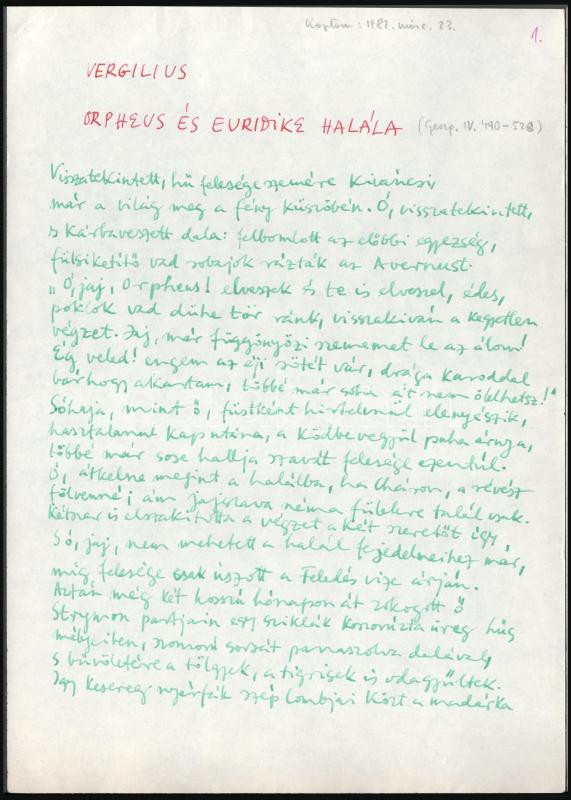 Kaptam: 1982. márc. 23.
1.
VERGILIUS
ORPHEUS ÉS EURIDIKE HALÁLA (Georg. IV. 490–528)
Visszatekintett, hű felesége szemére kiváncsi,
már a világ meg a fény küszöbén. Ó, visszatekintett,
s kárbaveszett dala: felbomlott az előbbi egyezség,
fülsiketítő vad robajok rázták az Avernust.
"Ó, jaj, Orpheus! elveszek és te is elveszel, édes,
poklok vad dühe tör ránk, visszakiván a kegyetlen
végzet. Jaj, már függönyözi szememet le az álom!
Ég veled! engem az éji sötét vár, drága karoddal
bárhogy akartam, többé már soha át nem ölelhetsz!"
Sóhaja, mint ő, füstként hirtelenül elenyészik,
hasztalanul kap utána, a ködbe vegyül puha árnya,
többé már sose hallja szavát felesége ezentúl.
Ó, átkelne megint a halálba, ha Cháron, a révész
fölvenné; ám jajszava néma fülekre talál csak.
Kétszer is elszakította a végzet a két szeretőt így
S ő, jaj, nem mehetett a halál fejedelmeihez már,
míg felesége csak úszott a Feledés vize árján.
Aztán még két hosszú hónapon át zokogott ő
Strymon partjain egy sziklák koszorúzta üreg hűs
mélyeiben, szomorú sorsát panaszolva dalával,
s bűvöletére a tölgyek, a tigrisek is odagyűltek.
Igy kesereg nyárfák szép lombjai közt a madárka